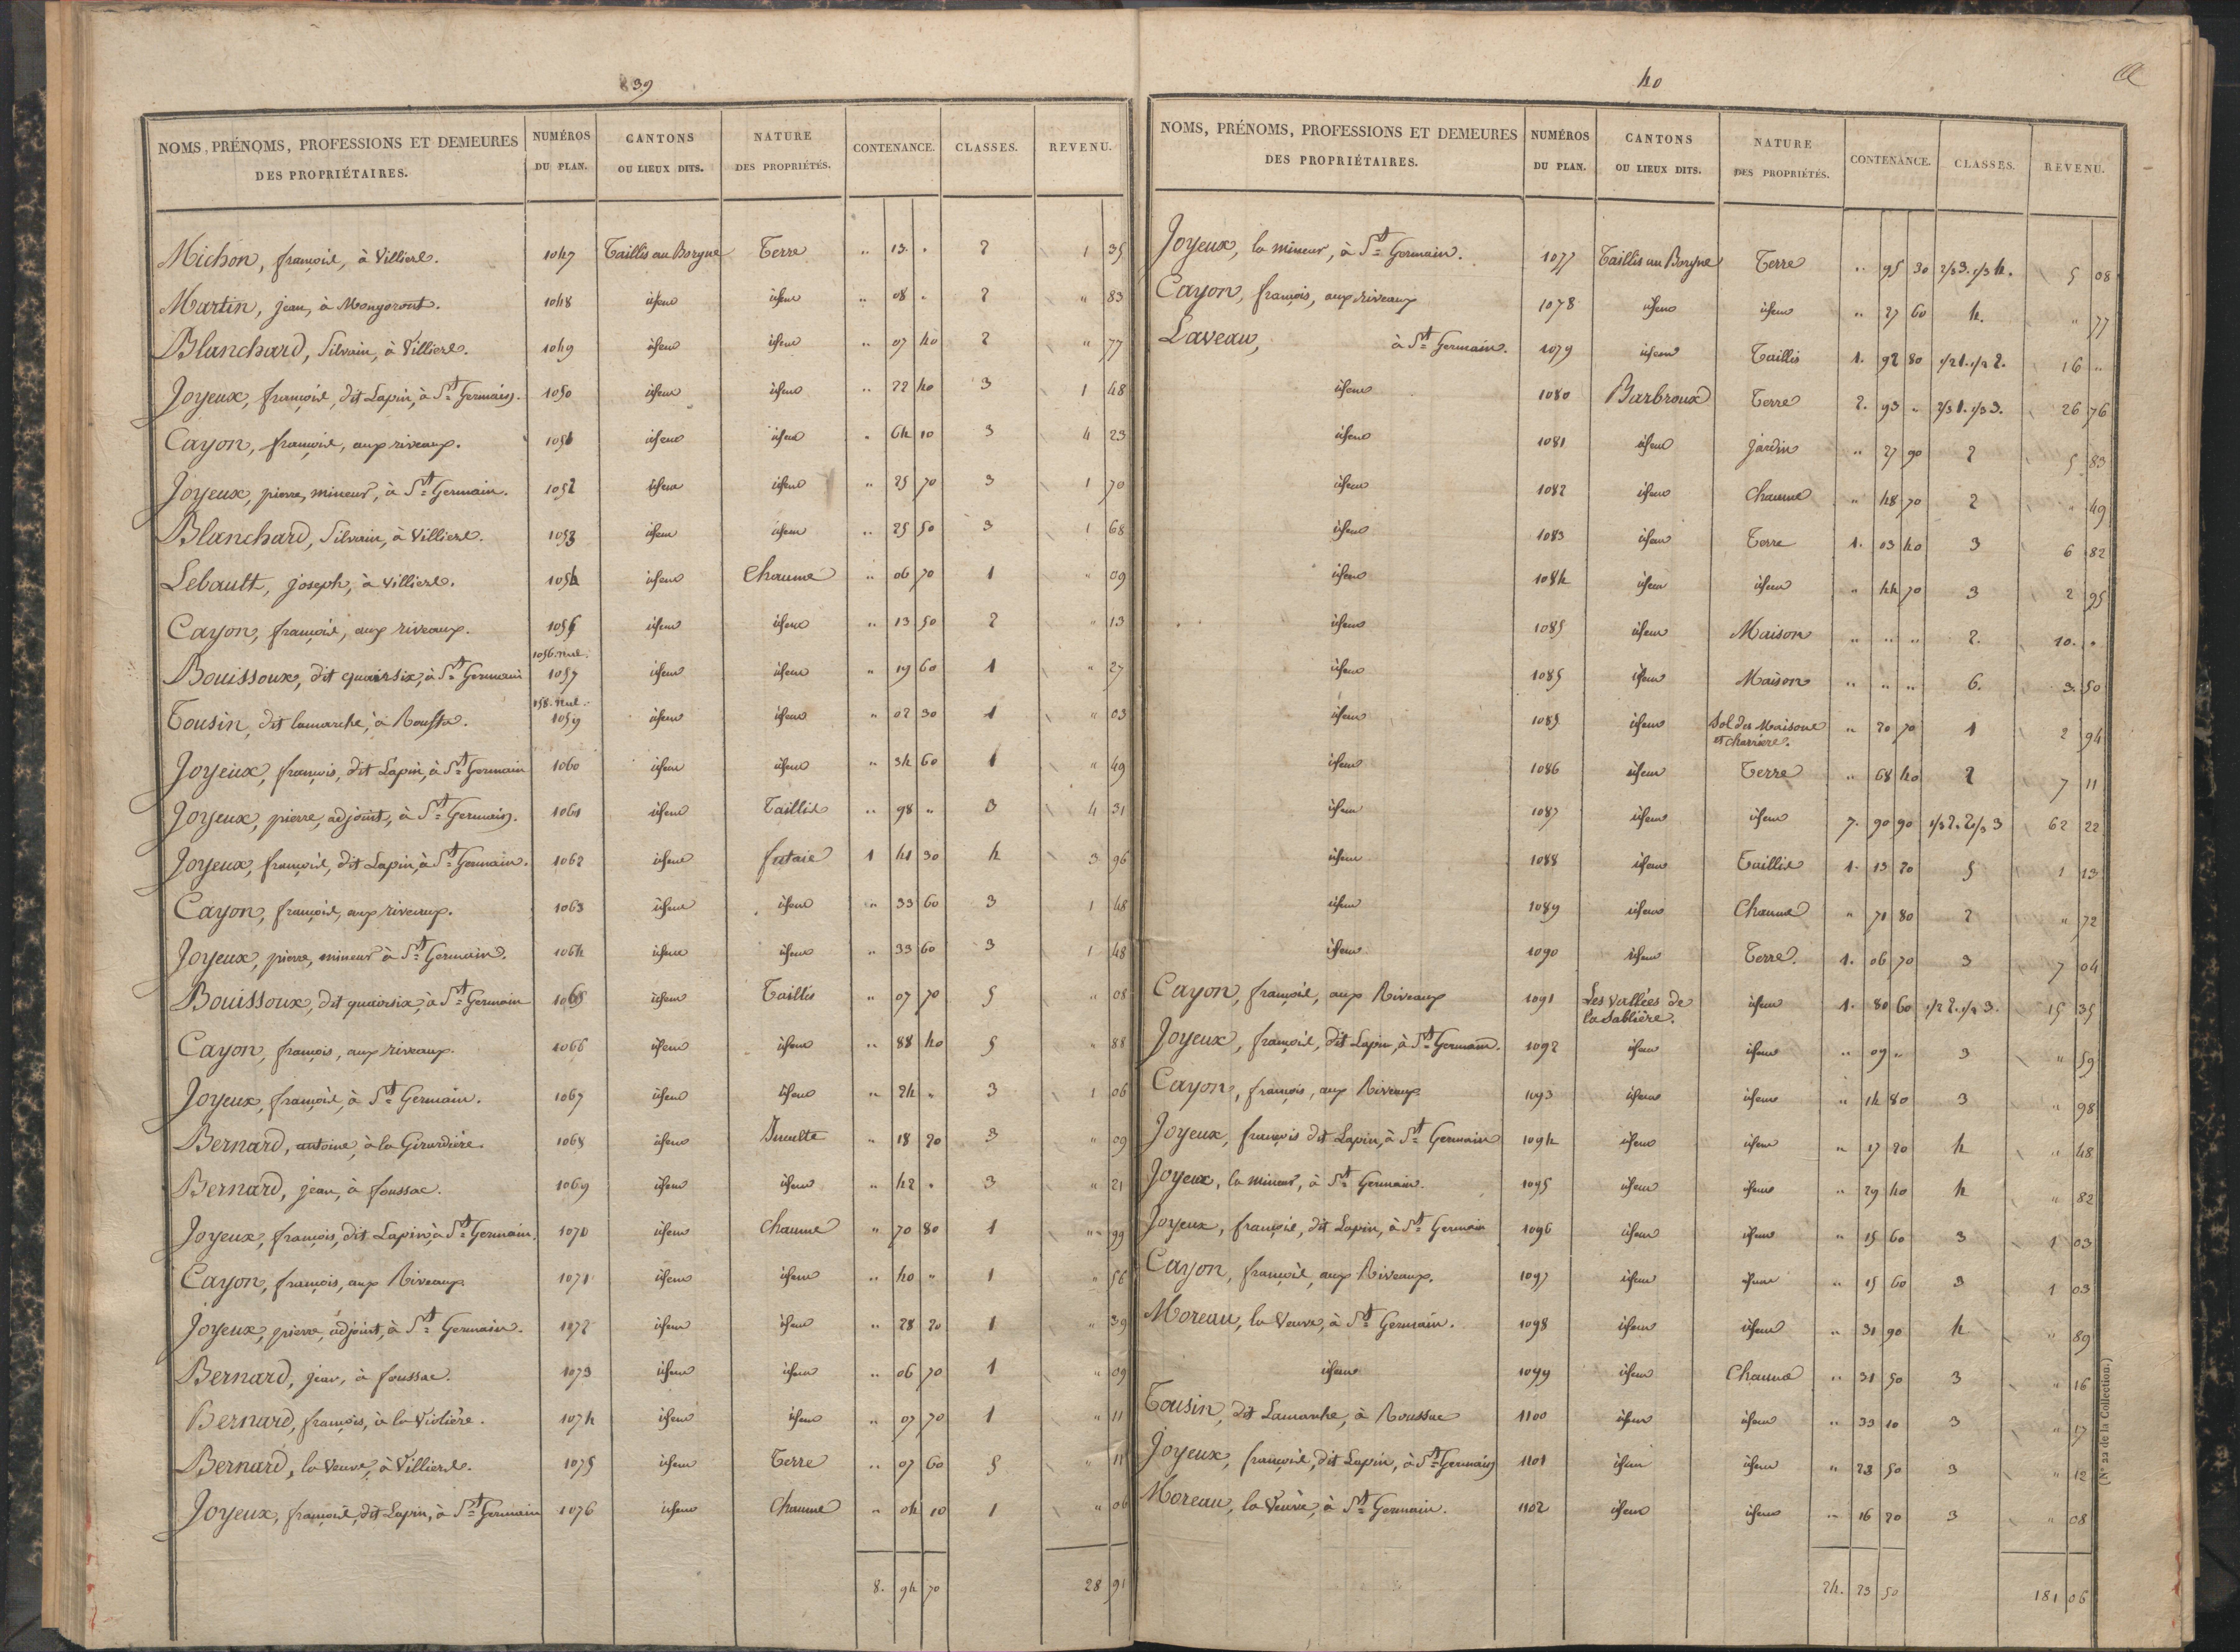 39
NOMS, PRÉNOMS, PROFESSIONS ET DEMEURES DES PROPRIÉTAIRES. NUMÉROS DU PLAN. CANTONS OU LIEUX DITS. NATURE DES PROPRIÉTÉS. CONTENANCE. CLASSES. REVENU.
Michon, françois, à Villiers. 1047 Taillis au Borgne Terre " 13 " 2 1 35
Martin, jean, à Mongoront. 1048 idem idem " 08 " 2 " 83
Blanchard, Silvain, à Villiers. 1049 idem idem " 07 40 2 " 77
Joyeux, françois, dit Lapin, à St Germain. 1050 idem idem " 22 40 3 1 48
Cayon, françois, aux riveaux. 1051 idem idem " 64 10 3 4 23
Joyeux, pierre, mineur, à St Germain. 1052 idem idem " 25 70 3 1 70
Blanchard, Silvain, à Villiers. 1053 idem idem " 25 50 3 1 68
Lebault, joseph, à Villiers. 1054 idem Chaume " 06 70 1 " 09
Cayon, françois, aux riveaux. 1055 idem idem " 13 50 2 " 13
1056. nul.
Bouissoux, dit quatorsix, à St Germain 1057 idem idem " 19 60 1 " 27
158. nul.
Tousin, dit lamarche, à 1059 idem idem " 02 30 1 " 03
Joyeux, françois, dit Lapin, à St Germain 1060 idem idem " 34 60 1 " 49
Joyeux, pierre, adjoint, à St Germain. 1061 idem Taillis " 98 " 3 4 31
Joyeux, françois, dit Lapin, à St Germain. 1062 idem futaie 1 41 30 4 3 96
Cayon, françois, aux riveaux. 1063 idem idem " 33 60 3 1 48
Joyeux, pierre, mineur à St Germain. 1064 idem idem " 33 60 3 1 48
Bouissoux, dit quatorsix, à St Germain 1065 idem Taillis " 07 70 5 " 08
Cayon, françois, aux riveaux. 1066 idem idem " 88 40 5 " 88
Joyeux, françois, à St Germain. 1067 idem idem " 24 " 3 1 06
Bernard, antoine, à la Girardière. 1068 idem Inculte " 18 20 3 " 09
Bernard, jean, à foussac. 1069 idem idem " 42 " 3 " 21
Joyeux, françois, dit Lapin, à St Germain. 1070 idem Chaume " 70 80 1 " 99
Cayon, françois, aux Riveaux 1071 idem idem " 40 " 1 " 56
Joyeux, pierre, adjoint, à St Germain. 1072 idem idem " 28 20 1 " 39
Bernard, jean, à foussac. 1073 idem idem " 06 70 1 " 09
Bernard, françois, à la Violière. 1074 idem idem " 07 70 1 " 11
Bernard, la Veuve, à Villiers. 1075 idem Terre " 07 60 5 " 11
Joyeux, françois, dit Lapin, à St Germain 1076 idem Chaume " 04 10 1 " 06
8. 94 70 28 91
40
NOMS, PRÉNOMS, PROFESSIONS ET DEMEURES DES PROPRIÉTAIRES. NUMÉROS DU PLAN. CANTONS OU LIEUX DITS. NATURE DES PROPRIÉTÉS. CONTENANCE. CLASSES. REVENU.
Joyeux, la mineur, à St Germain. 1077 Taillis au Borgne Terre " 95 30 2/3 3. 1/3 4. 5 08
Cayon, françois, aux riveaux 1078 idem idem " 27 60 4. " 77
Laveau, à St Germain. 1079 idem Taillis 1. 92 80 1/2 1. 1/2 2. 16 "
idem 1080 Barbroux Terre 2. 93 " 2/3 1. 1/3 3. 26 76
idem 1081 idem Jardin " 27 90 2 5 83
idem 1082 idem Chaume " 48 70 2 " 49
idem 1083 idem Terre 1. 03 40 3 6 82
idem 1084 idem idem " 44 70 3 2 95
idem 1085 idem Maison " " " 2. 10. "
idem 1085 idem Maison " " " 6. 3. 50
idem 1085 idem Sol des Maisons et charrière. " 20 70 1 2 94
idem 1086 idem Terre " 68 40 2 7 11
idem 1087 idem idem 7. 90 90 1/3 2. 2/3 3 62 22
idem 1088 idem Taillis 1. 13 20 5 1 13
idem 1089 idem Chaume " 71 80 2 " 72
idem 1090 idem Terre. 1. 06 70 3 7 04
Cayon, françois, aux Riveaux 1091 Les Vallées de la Sablière. idem 1. 80 60 1/2 2. 1/2 3. 15 35
Joyeux, françois, dit Lapin, à St Germain. 1092 idem idem " 09 " 3 " 59
Cayon, françois, aux Riveaux 1093 idem idem " 14 80 3 " 98
Joyeux, françois dit Lapin, à St Germain 1094 idem idem " 17 20 4 " 48
Joyeux, la mineur, à St Germain. 1095 idem idem " 29 40 4 " 82
Joyeux, françois, dit Lapin, à St Germain 1096 idem idem " 15 60 3 1 03
Cayon, françois, aux Riveaux. 1097 idem idem " 15 60 3 1 03
Moreau, la Veuve, à St Germain. 1098 idem idem " 31 90 4 " 89
idem 1099 idem Chaume " 31 50 3 " 16
Tousin, dit Lamarche, à Roussac 1100 idem idem " 33 10 3 " 17
Joyeux, françois, dit Lapin, à St Germain 1101 idem idem " 23 50 3 " 12
Moreau, la Veuve, à St Germain. 1102 idem idem " 16 20 3 " 08
24. 23 50 181 06
(N° 22 de la Collection.)